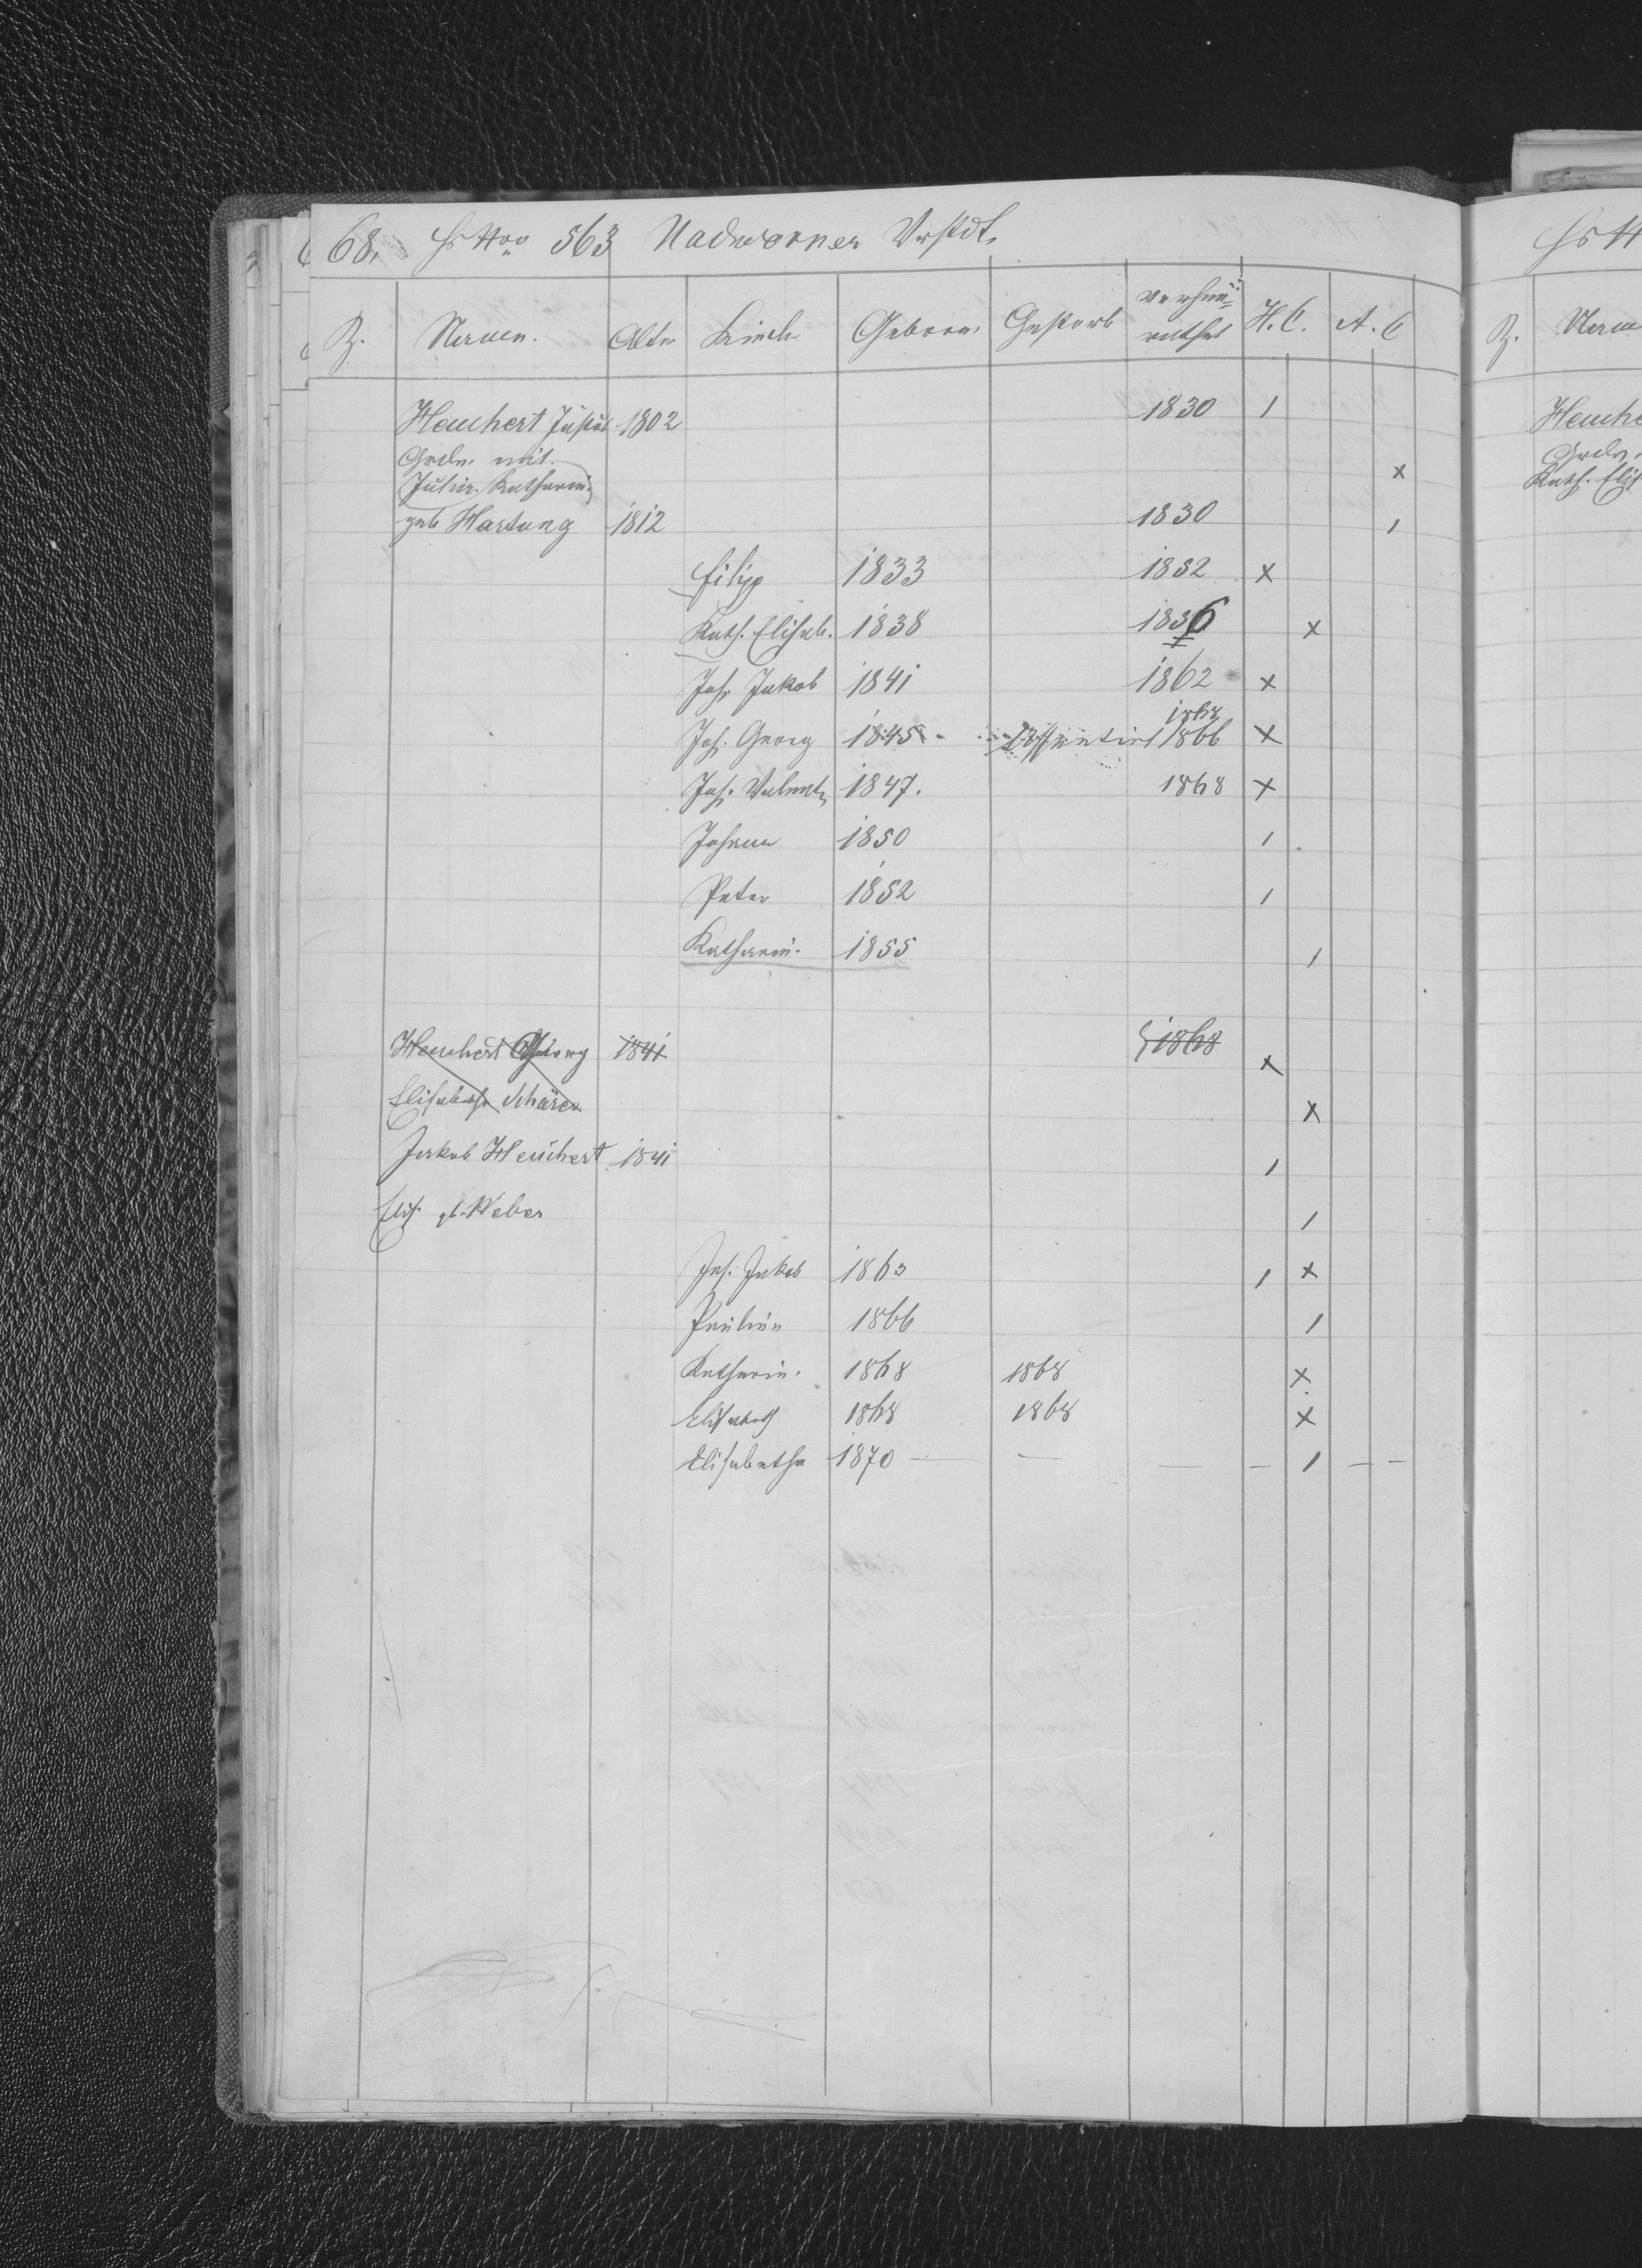 68. Hs Nro 563 Nadworner Vrstdt.
Z. Namen. Alter Kinder Geboren Gestorb verheu=
rathet H. C. A. C
Heuchert Justus 1802 1830 1
Grdw. mit x
Julie. Katharin.
geb Hartung 1812 1830 1
Filipp 1833 1852 x
Kath. Elisab. 1838 1856 x
Joh Jakob 1841 1862 x
1868
Joh. Georg 1845 1866 x
Joh. Valent. 1847. 1868 x
Johann 1850 1
Peter 1852 1
Katharin. 1855 1
Heuchert Georg 1841 1868 x
Elisabetha Schärer x
Jakob Heuchert 1841 1
Elis. gb. Weber 1
Joh. Jakob 1863 1 x
Paulina 1866 1
Katharin. 1868 1868 x
Elisabeth 1868 1868 x
Elisabetha 1870 — — — — 1 — —
Hs N
Z. Name
Heuche
Grdw.
Kath. Elis